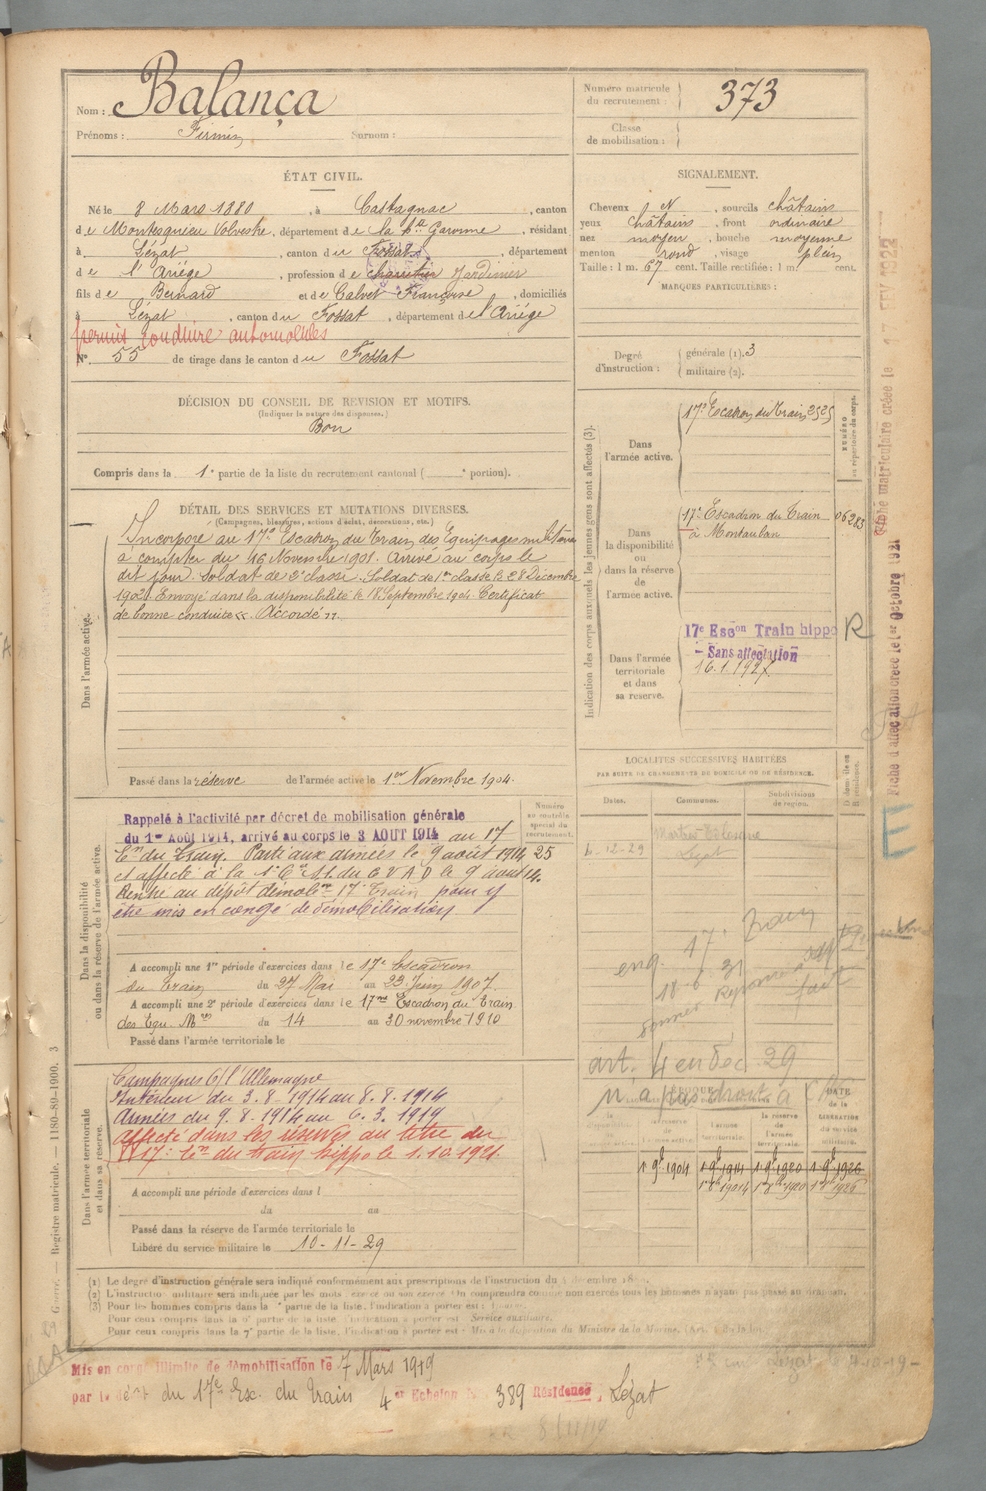 Nom : Balança
Prénoms : Firmin Surnom :
Numéro matricule du recrutement : 373
Classe de mobilisation :
ÉTAT CIVIL.
Né le 8 Mars 1880, à Castagnac, canton
de Montesquieu Volvestre, département de la Hte Garonne, résidant
à Lézat, canton du Fossat, département
de l'Ariège, profession de charretier Jardinier
fils de Bernard et de Calvet Françoise, domiciliés
à Lézat, canton du Fossat, département de l'Ariège
permis conduire automobiles
N° 55 de tirage dans le canton du Fossat
SIGNALEMENT.
Cheveux N, sourcils châtains
yeux châtains, front ordinaire
nez moyen, bouche moyenne
menton rond, visage plein
Taille : 1 m. 67 cent. Taille rectifiée : 1 m. cent.
MARQUES PARTICULIÈRES :
Degré d'instruction : générale (1). 3
militaire (2).
DÉCISION DU CONSEIL DE REVISION ET MOTIFS.
(Indiquer la nature des dispenses.)
Bon
Compris dans la 1e partie de la liste du recrutement cantonal ( e portion).
DÉTAIL DES SERVICES ET MUTATIONS DIVERSES.
(Campagnes, blessures, actions d'éclat, décorations, etc.)
Dans l'armée active.
Incorporé au 17e Escadron du Train des Equipages militaires
à compter du 16 Novembre 1901. Arrivé au corps le
dit jour. Soldat de 2e classe. Soldat de 1re classe le 28 Décembre
1902. Envoyé dans la disponibilité le 18 Septembre 1904. Certificat
de bonne conduite << Accordé >>.
Passé dans la réserve de l'armée active le 1er Novembre 1904.
Indication des corps auxquels les jeunes gens sont affectés (3).
NUMÉRO au répertoire du corps.
Dans l'armée active.
17e Escadron du Train 2525
Dans la disponibilité ou dans la réserve de l'armée active.
17e Escadron du Train 06283
à Montauban
Dans l'armée territoriale et dans sa réserve.
17e Escon Train hippo R
- Sans affectation
16.1.1927
Fiche matriculaire créée le 17 FEV 1922
Fiche d'affectation créée le 1er Octobre 1921
E
Dans la disponibilité ou dans la réserve de l'armée active.
Numéro au contrôle spécial du recrutement.
Rappelé à l'activité par décret de mobilisation générale
du 1er Août 1914, arrivé au corps le 3 AOUT 1914 au 17
En du Train. Parti aux armées le 9 août 1914 25
et affecté à la 1e Cie du G V A D le 9 août 14.
Rentré au dépôt démobr 17e Train pour y
être mis en congé de démobilisation
A accompli une 1re période d'exercices dans le 17e Escadron
du Train du 27 Mai au 23 Juin 1907.
A accompli une 2e période d'exercices dans le 17me Escadron du Train
des Equ. Mres du 14 au 30 novembre 1910
Passé dans l'armée territoriale le
LOCALITÉS SUCCESSIVES HABITÉES
PAR SUITE DE CHANGEMENTS DE DOMICILE OU DE RÉSIDENCE.
Dates. Communes. Subdivisions de région.
Lezat
eng. 17e Train
18.6.31
art. 4 en dec. 29
n'a pas droit à
Dans l'armée territoriale et dans sa réserve.
Campagnes C/ l'Allemagne
Intérieur du 3.8.1914 au 8.8.1914
Armées du 9.8.1914 au 6.3.1919
affecté dans les réserves au titre du
17e En du train hippo le 1.10.1921
A accompli une période d'exercices dans l
du au
Passé dans la réserve de l'armée territoriale le
Libéré du service militaire le 10-11-29
ÉPOQUE
DATE de la LIBÉRATION du service militaire.
la réserve de l'armée territoriale.
1 9b 1904 1 9b 1914 1 9b 1920 1 9b 1926
(1) Le degré d'instruction générale sera indiqué conformément aux prescriptions de l'instruction du
Pour les hommes compris dans la e partie de la liste, l'indication à porter est :
Pour ceux compris dans la 6e partie de la liste, l'indication à porter est Service auxiliaire.
Pour ceux compris dans la 7e partie de la liste, l'indication à porter est : Mis à la disposition du Ministre de la Marine.
Registre matricule. — 1180-89-1900. 3
Mis en congé illimité de démobilisation le 7 Mars 1919
par le dépôt du 17e Esc. du Train 4er Echelon 389 Résidence, Lézat